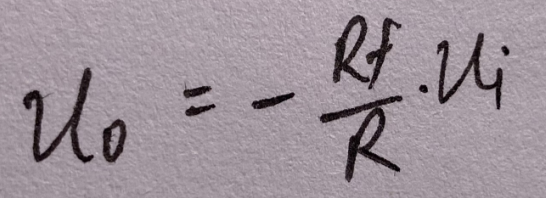 u₀ = - Rf/R · uᵢ